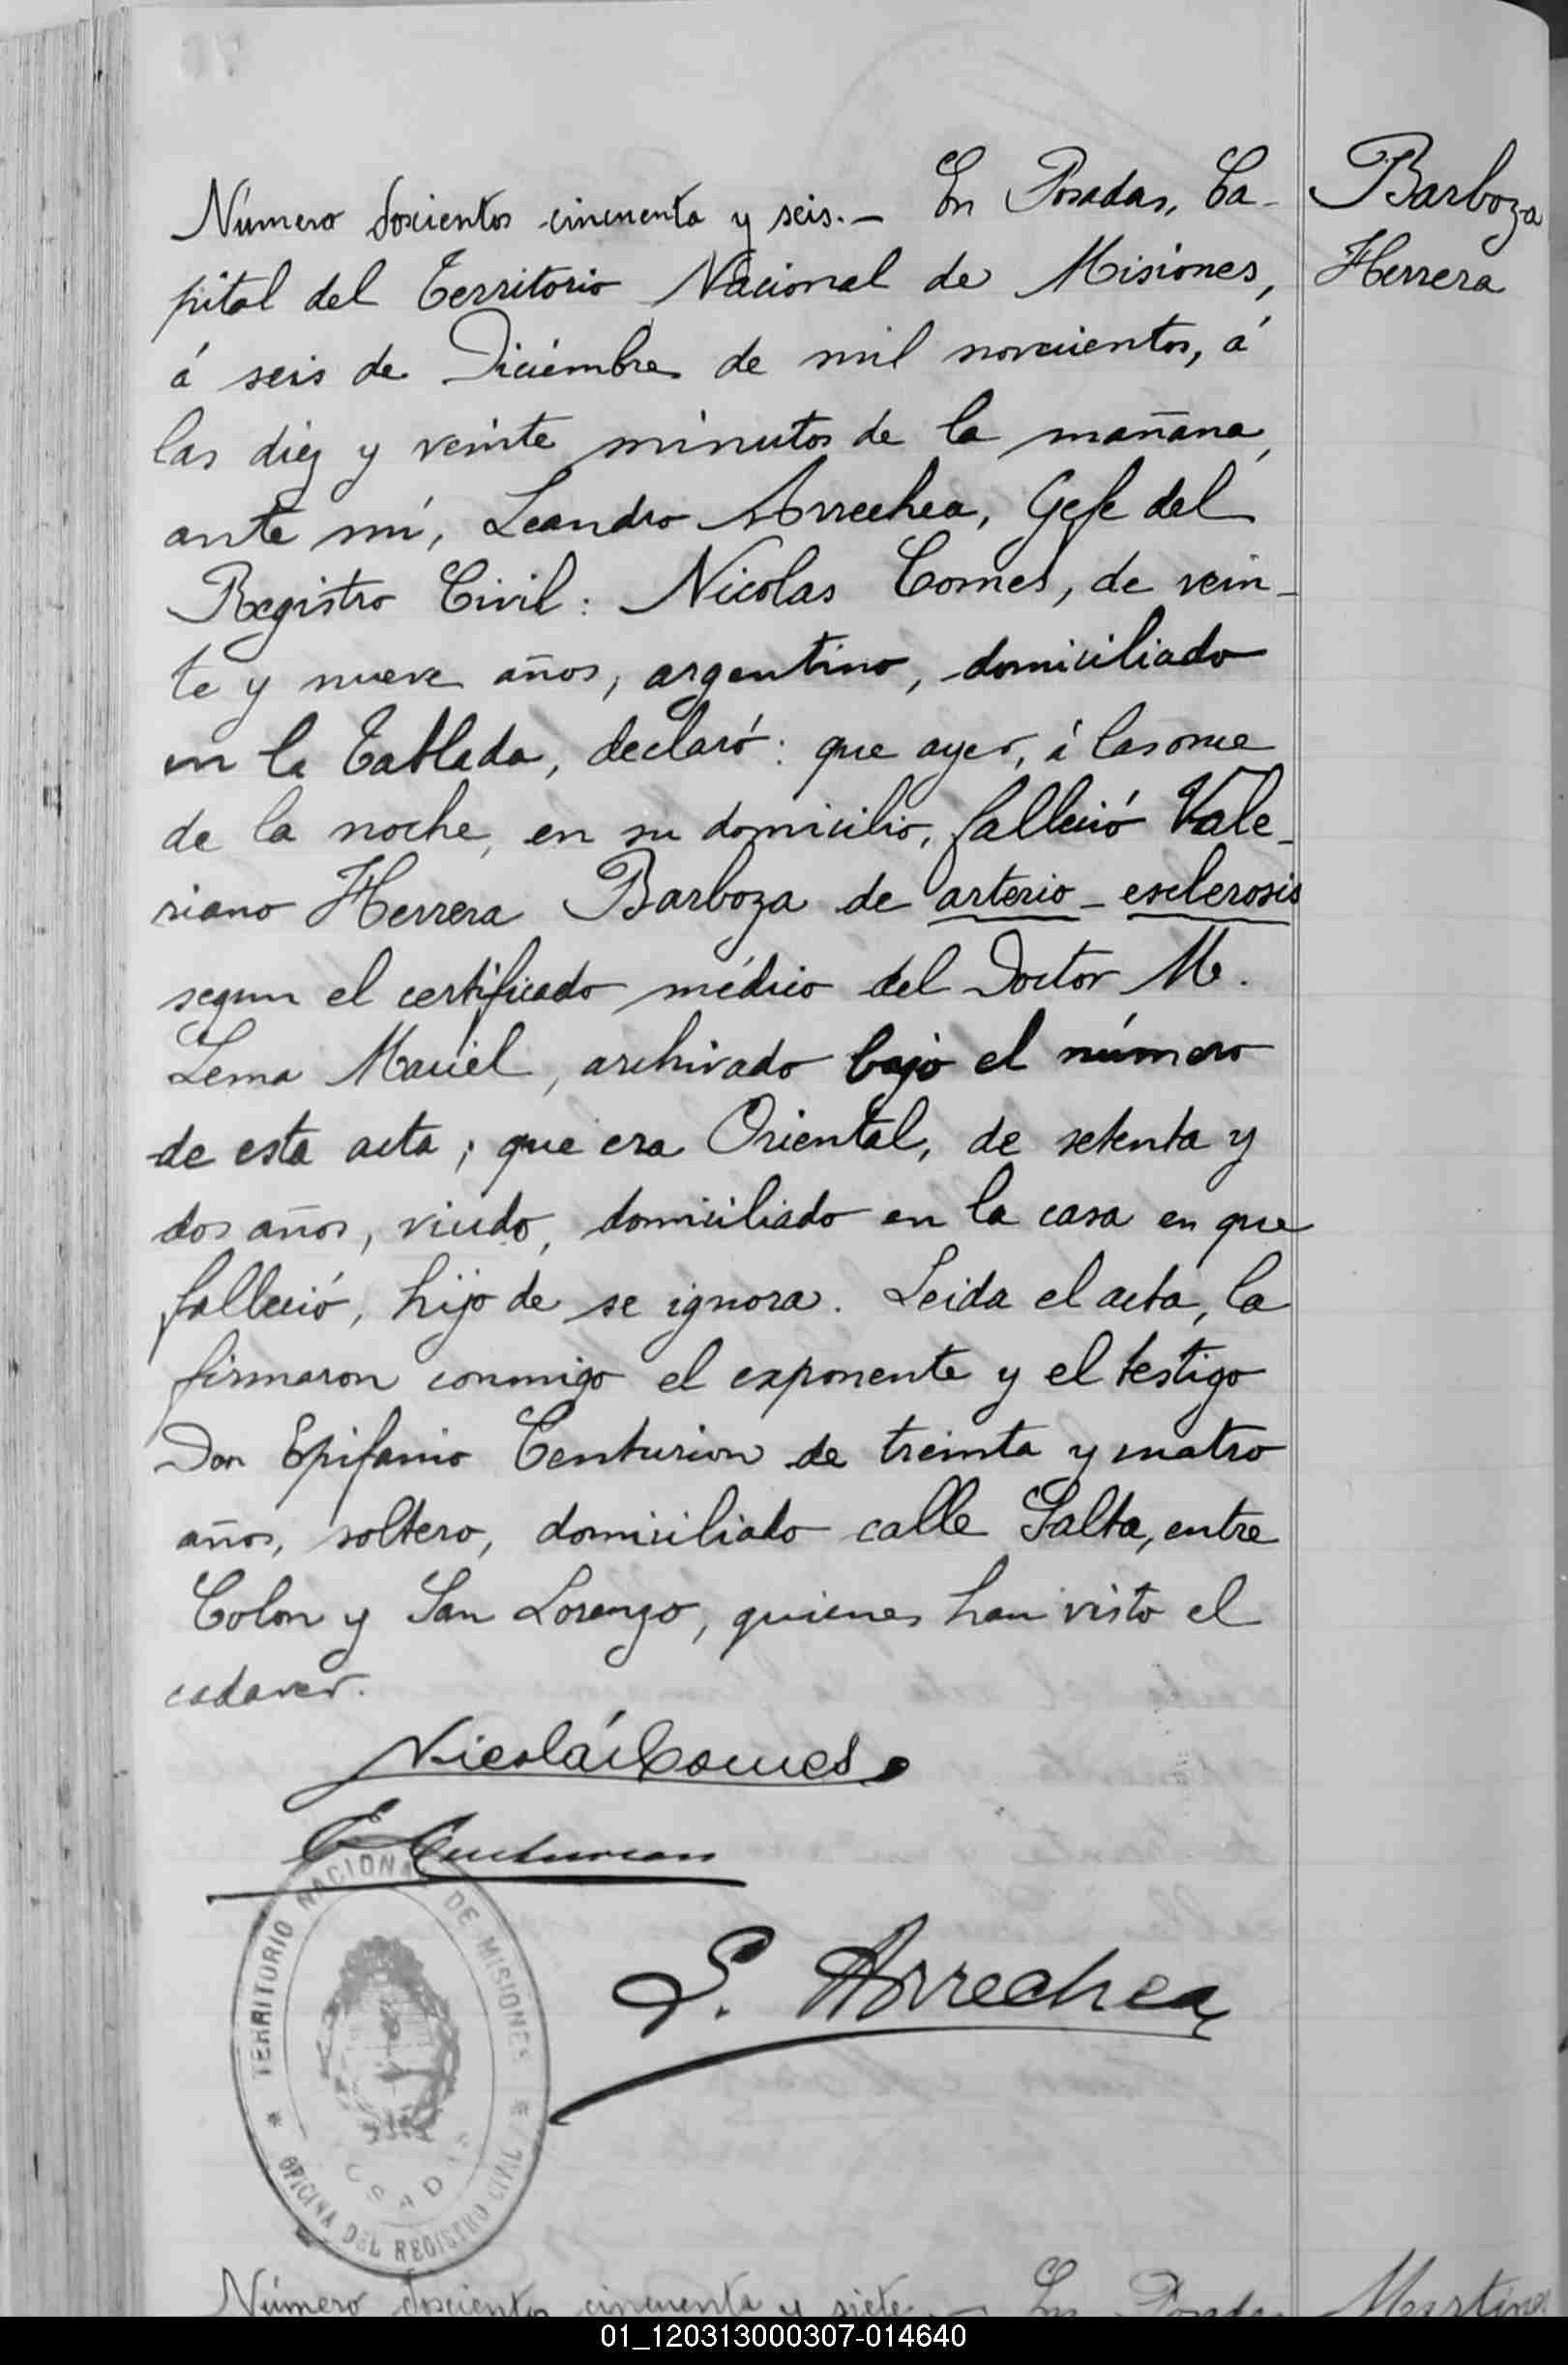 Número doscientos cincuenta y seis. — En Posadas, Ca-
pital del Territorio Nacional de Misiones,
á seis de Diciembre de mil novecientos, á
las diez y veinte minutos de la mañana,
ante mí, Leandro Arrechea, Gefe del
Registro Civil: Nicolas Comes, de vein-
te y nueve años, argentino, domiciliado
en la Tablada, declaró: que ayer, á las once
de la noche, en su domicilio, falleció Vale-
riano Herrera Barboza de arterio-esclerosis
segun el certificado médico del Doctor M.
Lema Maciel, archivado bajo el número
de esta acta; que era Oriental, de setenta y
dos años, viudo, domiciliado en la casa en que
falleció, hijo de se ignora. Leida el acta, la
firmaron conmigo el exponente y el testigo
Don Epifanio Centurion de treinta y cuatro
años, soltero, domiciliado calle Salta, entre
Colon y San Lorenzo, quienes han visto el
cadaver.
Barboza
Herrera
Nicolás Comes
E Centurion
L. Arrechea
TERRITORIO NACIONAL DE MISIONES
OFICINA DEL REGISTRO CIVIL
Número doscientos cincuenta y siete. — En Posadas
01_120313000307-014640